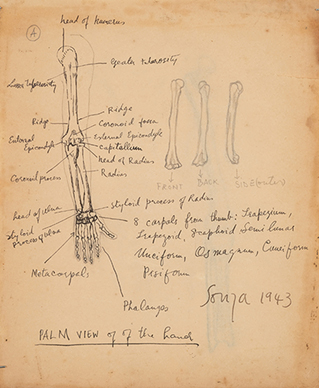 A
head of humerus
Greater tuberosity
Less Tuberosity
Ridge
Coronoid fossa
Ridge
External Epicondyle
External
Epicondyle
capitellum
head of Radius
Radius
Coronoid process
FRONT
BACK
SIDE
styloid process of Radius
head of ulna
8 carpals from thumb: Trapezium,
styloid
process of ulna
Trapezoid, Scaphoid Semi lunar
Unciform, Os magnum, Cuneiform
Pisiform
Metacarpals
Phalanges
Souza 1943
PALM VIEW of of the hand